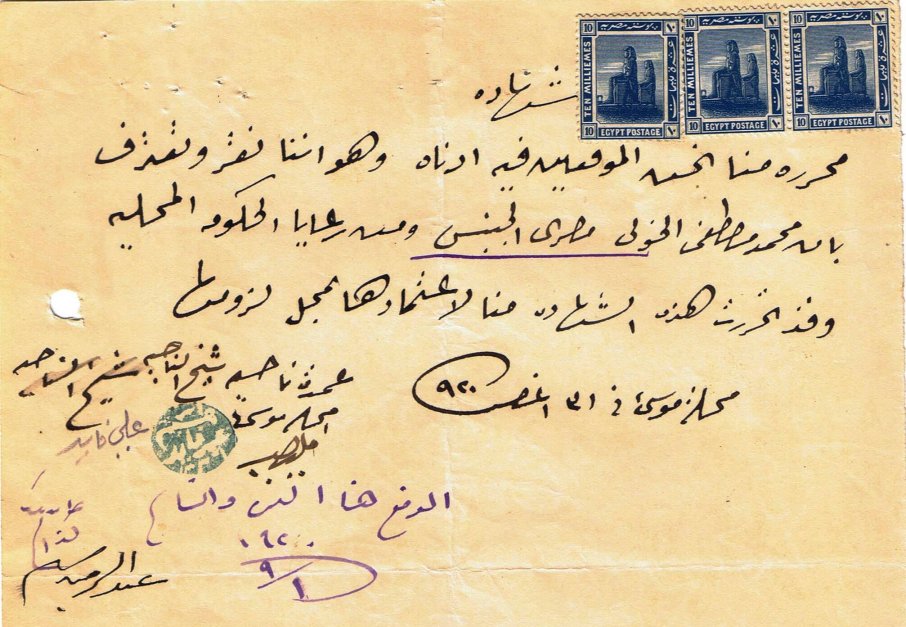 بوستة مصرية
TEN MILLIEMES
10
EGYPT POSTAGE
١٠
بوستة مصرية
TEN MILLIEMES
10
EGYPT POSTAGE
١٠
بوستة مصرية
TEN MILLIEMES
10
EGYPT POSTAGE
١٠
شهاده
محرره منا نحن الموقعين فيه ادناه وهو اننا نقر ونعترف
بان محمد مصطفى الخولى مصرى الجنس ومن رعايا الحكومه المحليه
وقد تحررت هذه الشهاده منا لاعتمادها بمحل لزومها
محلة موسى فى ٣١ اغسطس ٩٢٠
عمدة ناحيه
محلة موسى
شيخ الناحيه
شيخ الناحيه
على
الموقع هنا
١٩٢٠
٩/١
عبد الرحمن